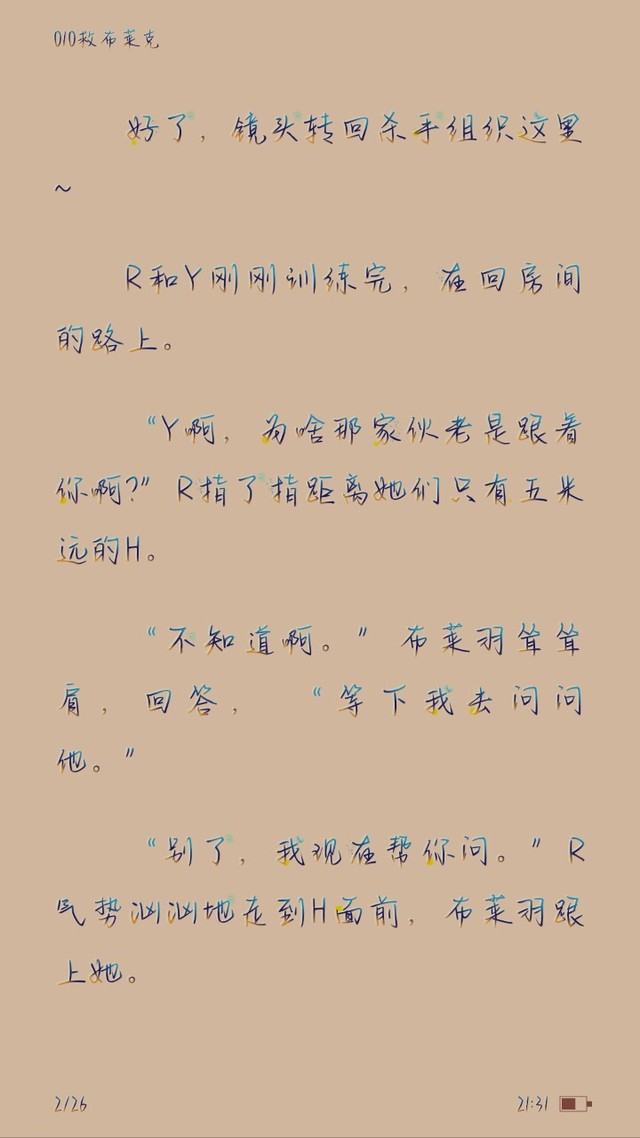 010救布莱克
好了，镜头转回杀手组织这里
~
R和Y刚刚训练完，在回房间
的路上。
“Y啊，为啥那家伙老是跟着
你啊?” R指了指距离她们只有五米
远的H。
“不知道啊。” 布莱羽耸耸
肩，回答，“等下我去问问
他。”
“别了，我现在帮你问。” R
气势汹汹地走到H面前，布莱羽跟
上她。
2/26
21:31